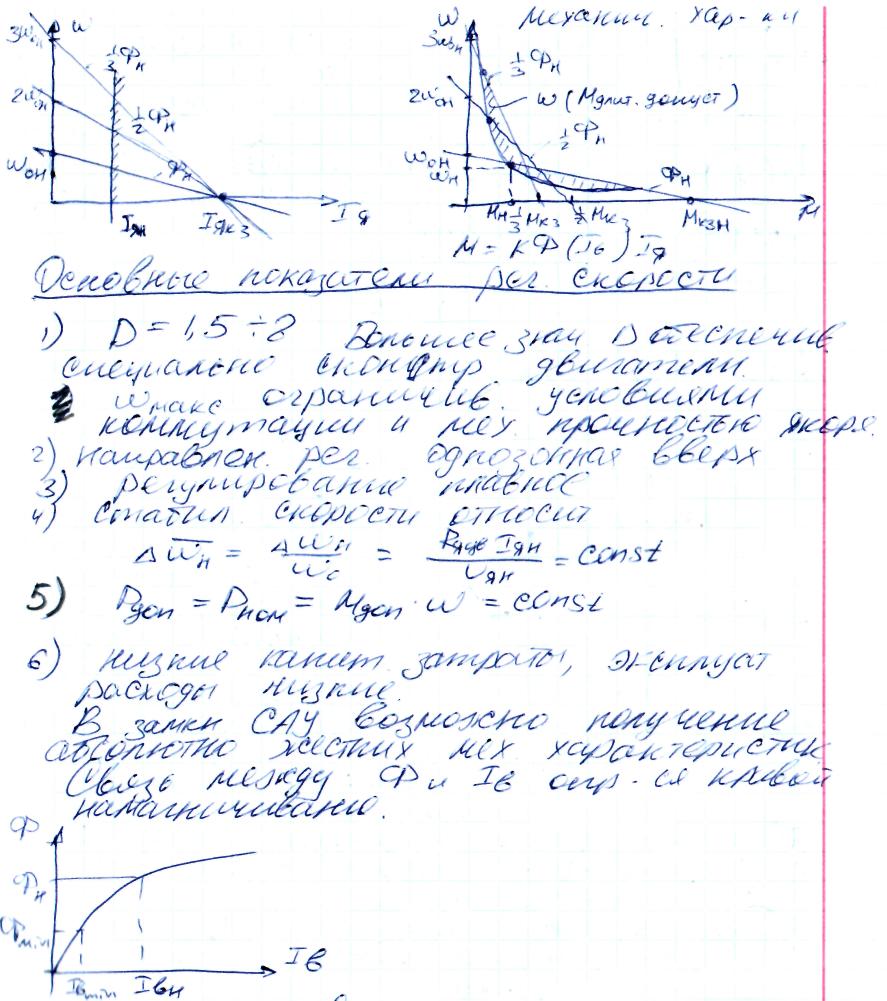 Механич. хар-ки
ω
3ω₀н
1/3 Фн
2ω₀н
1/2 Фн
ω₀н
Фн
Iян
Iякз
Iя
ω
3ω₀н
1/3 Фн
2ω₀н
ω (Мдлит. допуст)
1/2 Фн
ω₀н
ωн
Фн
Мн
1/3 Мкз
1/2 Мкз
Мкзн
М
М = кФ(Iв) Iя
Основные показатели рег. скорости
1) D = 1,5 ÷ 8 Большее знач D обеспечив
специально сконстр двигатели.
ωмакс ограничив. условиями
коммутации и мех. прочностью якоря.
2) направлен. рег. однозонная вверх
3) регулирование плавное
4) стабил. скорости относит
Δω̄н = Δωн/ω₀ = Rяце Iян/Uян = const
5) Рдоп = Рном = Мдоп · ω = const
6) низкие капит. затраты, эксплуат
расходы низкие.
В замкн САУ возможно получение
абсолютно жестких мех характеристик
Связь между Ф и Iв опр-ся кривой
намагничиванию.
Ф
Фн
Фmin
Iвmin
Iвн
Iв